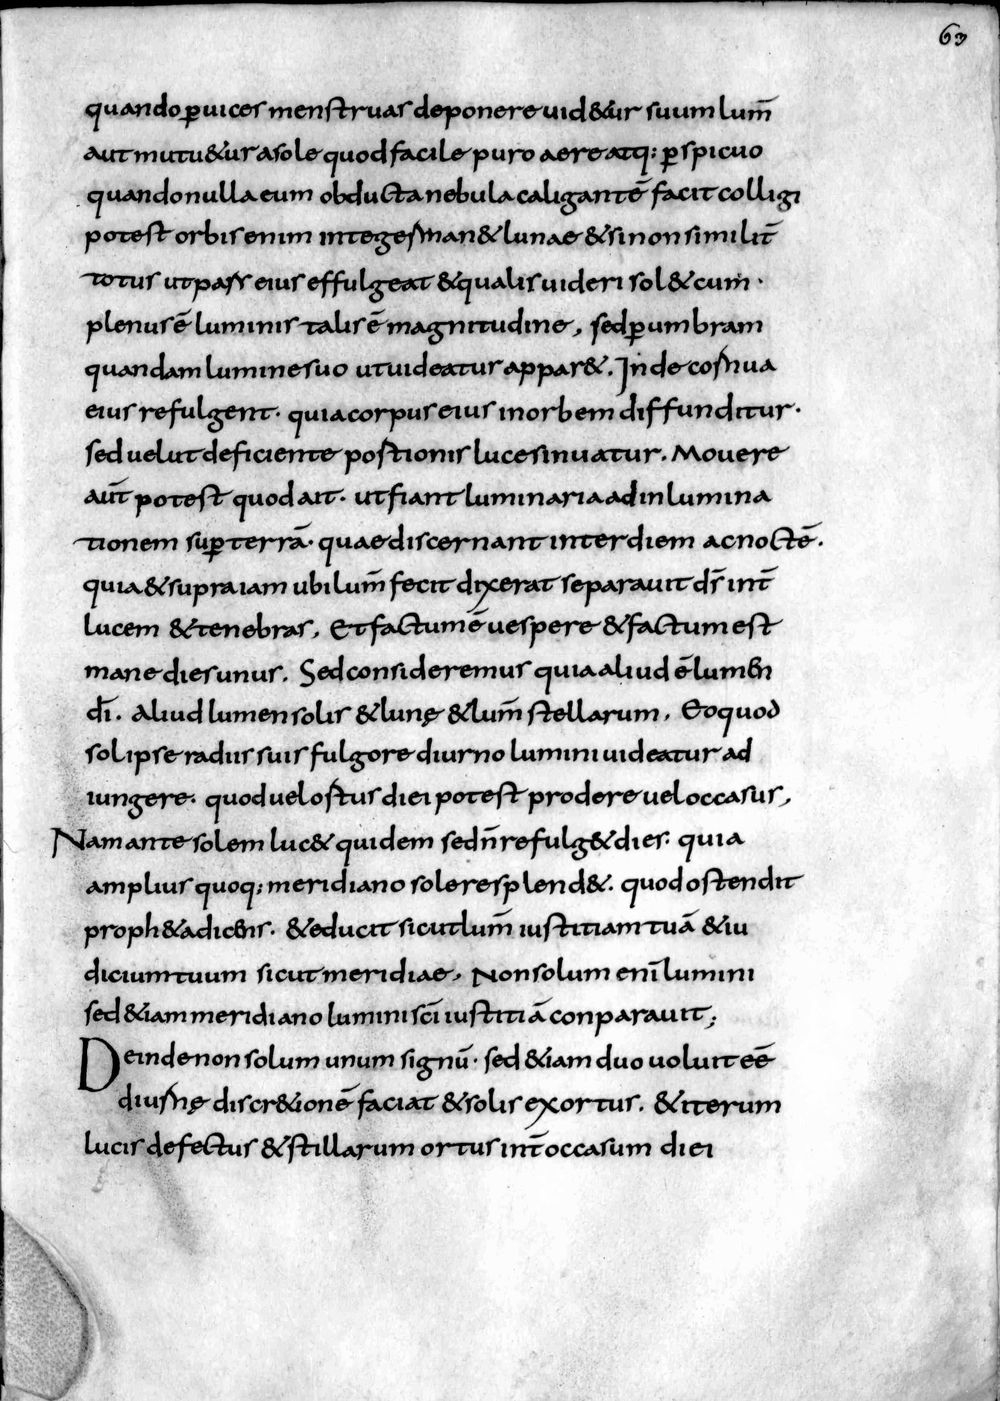 63
quando ꝑ uices menstruas deponere uid&ur suum lum̄
aut mutu&ur a sole quod facile puro aere atq; ꝑspicuo
quando nulla eum obducta nebula caligantē facit colligi
potest orbis enim integer man& lunae & si non similit̄
totus ut pars eius effulgeat & qualis uideri sol& cum ·
plenus ē luminis talis ē magnitudine, sed ꝑ umbram
quandam lumine suo ut uideatur appar&. Inde cornua
eius refulgent · quia corpus eius in orbem diffunditur ·
sed uelut deficiente postionis luce sinuatur. Mouere
aut̄ potest quod ait · ut fiant luminaria ad inlumina
tionem suꝑ terrā · quae discernant inter diem ac noctē.
quia & supra iam ubi lum̄ fecit dixerat separauit ds̄ int̄
lucem & tenebras, Et factum ē uespere & factum est
mane dies unus. Sed consideremus quia aliud ē lumen
dī. Aliud lumen solis & lunę & lum̄ stellarum, Eo quod
sol ipse radiis suis fulgore diurno lumini uideatur ad
iungere · quod uel ortus diei potest prodere uel occasus,
Nam ante solem luc& quidem sed n̄ refulg& dies · quia
amplius quoq; meridiano sole resplend&. quod ostendit
proph&a dicens. & educit sicut lum̄ iustitiam tuā & iu
dicium tuum sicut meridiae, Non solum enī lumini
sed &iam meridiano lumini scī iustitiā conparauit;
Deinde non solum unum signū · sed &iam duo uoluit eē
diurnę discr&ionē faciat & solis exortus. & iterum
lucis defectus & stillarum ortus int̄ occasum diei